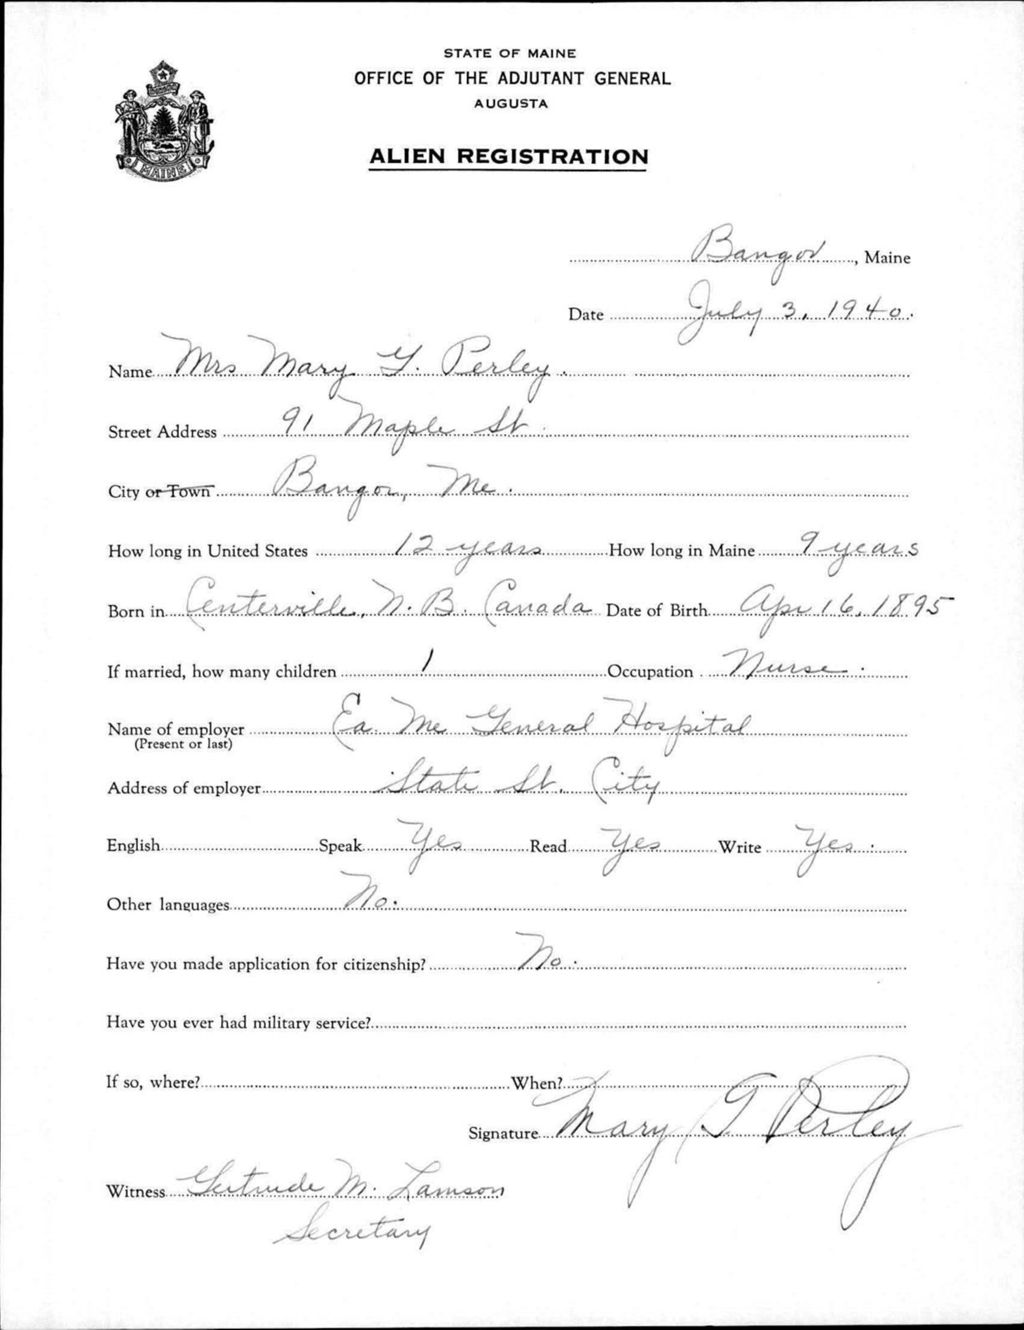 STATE OF MAINE
OFFICE OF THE ADJUTANT GENERAL
AUGUSTA
ALIEN REGISTRATION
MAINE
Bangor, Maine
Date July 3, 1940.
Name Mrs Mary G. Perley.
Street Address 91 Maple St.
City or Town Bangor, Me.
How long in United States 12 years How long in Maine 9 years
Born in Centerville, N.B. Canada Date of Birth Apr 16, 1895
If married, how many children 1 Occupation Nurse.
Name of employer Ea. Me General Hospital
(Present or last)
Address of employer State St. City
English Speak Yes Read Yes Write Yes.
Other languages No.
Have you made application for citizenship? No.
Have you ever had military service?
If so, where? When?
Signature Mary G Perley
Witness Gertrude M. Lamson
Secretary